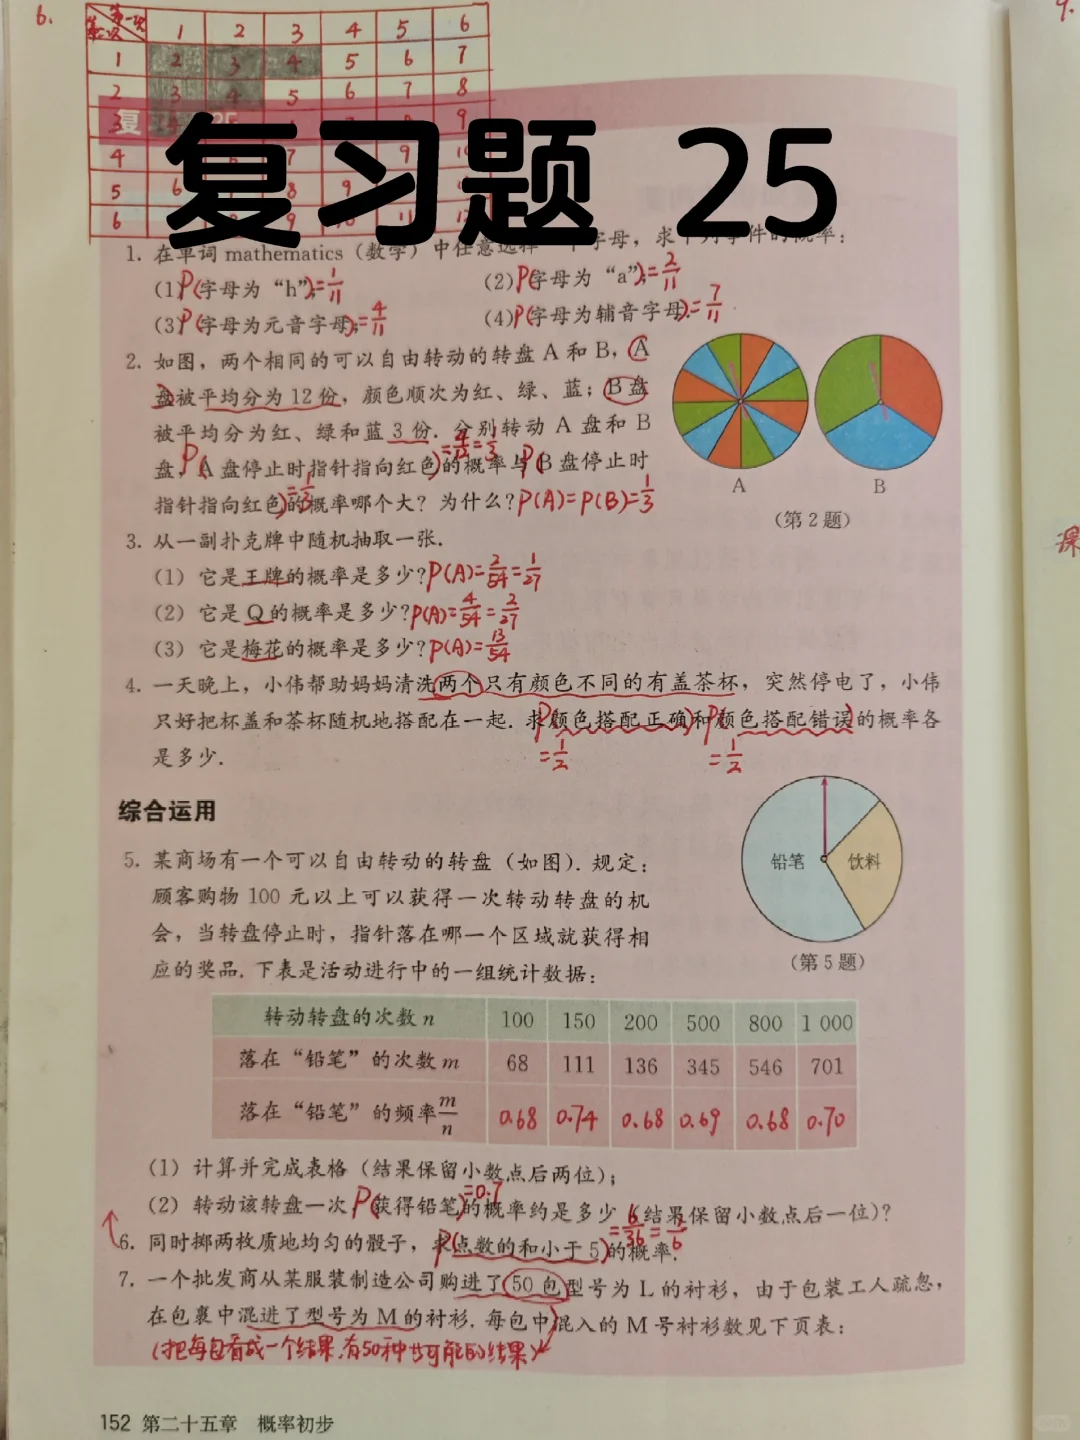 6.
第一次
第二次
1 2 3 4 5 6
1 2 3 4 5 6 7
2 3 4 5 6 7 8
3 9
4 7 9
5 6 8 9
6 9 11
复习题 25
1. 在单词 mathematics（数学）中任意选择一个字母，求下列事件的概率：
(1) P(字母为“h”)=1/11 (2) P(字母为“a”)=2/11
(3) P(字母为元音字母)=4/11 (4) P(字母为辅音字母)=7/11
2. 如图，两个相同的可以自由转动的转盘 A 和 B，A
盘被平均分为 12 份，颜色顺次为红、绿、蓝；B 盘
被平均分为红、绿和蓝 3 份. 分别转动 A 盘和 B
盘，P(A 盘停止时指针指向红色)=4/12=1/3的概率与P(B 盘停止时
指针指向红色)=1/3的概率哪个大？为什么？P(A)=P(B)=1/3
A B
（第 2 题）
3. 从一副扑克牌中随机抽取一张.
(1) 它是王牌的概率是多少？P(A)=2/54=1/27
(2) 它是 Q 的概率是多少？P(A)=4/54=2/27
(3) 它是梅花的概率是多少？P(A)=13/54
4. 一天晚上，小伟帮助妈妈清洗两个只有颜色不同的有盖茶杯，突然停电了，小伟
只好把杯盖和茶杯随机地搭配在一起. 求P(颜色搭配正确)和P(颜色搭配错误)的概率各
是多少. =1/2 =1/2
综合运用
5. 某商场有一个可以自由转动的转盘（如图）. 规定：
顾客购物 100 元以上可以获得一次转动转盘的机
会，当转盘停止时，指针落在哪一个区域就获得相
应的奖品. 下表是活动进行中的一组统计数据：
铅笔 饮料
（第 5 题）
转动转盘的次数 n 100 150 200 500 800 1 000
落在“铅笔”的次数 m 68 111 136 345 546 701
落在“铅笔”的频率 m/n 0.68 0.74 0.68 0.69 0.68 0.70
(1) 计算并完成表格（结果保留小数点后两位）；
(2) 转动该转盘一次，P(获得铅笔)=0.7的概率约是多少（结果保留小数点后一位）？
6. 同时掷两枚质地均匀的骰子，求P(点数的和小于 5)=6/36=1/6的概率.
7. 一个批发商从某服装制造公司购进了 50 包型号为 L 的衬衫，由于包装工人疏忽，
在包裹中混进了型号为 M 的衬衫. 每包中混入的 M 号衬衫数见下页表：
(把每包看成一个结果,有50种等可能的结果)
152 第二十五章 概率初步
9.
课